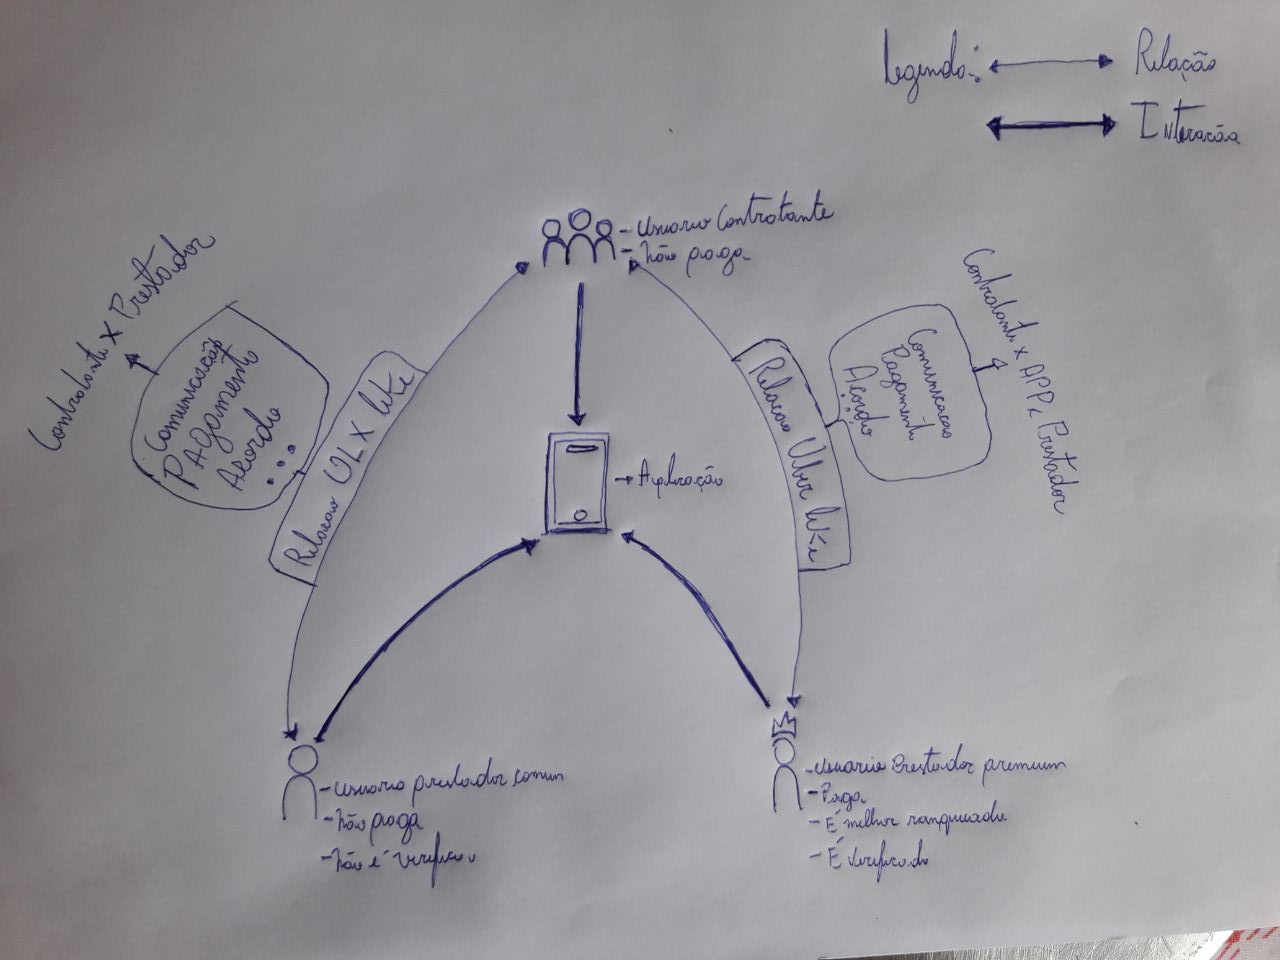 Legenda: Relação
Interação
- Usuario Contratante
- Não paga
Contratante X Prestador
Comunicação
Pagamento
Acordo
...
Relacao OLX like
Relacao Uber like
Comunicacao
Pagamento
Acordo
...
Contratante X APP e Prestador
Aplicação
- Usuario prestador comum
- Não paga
- Não é verificado
- Usuario Prestador premium
- Paga
- É melhor ranqueado
- É verificado